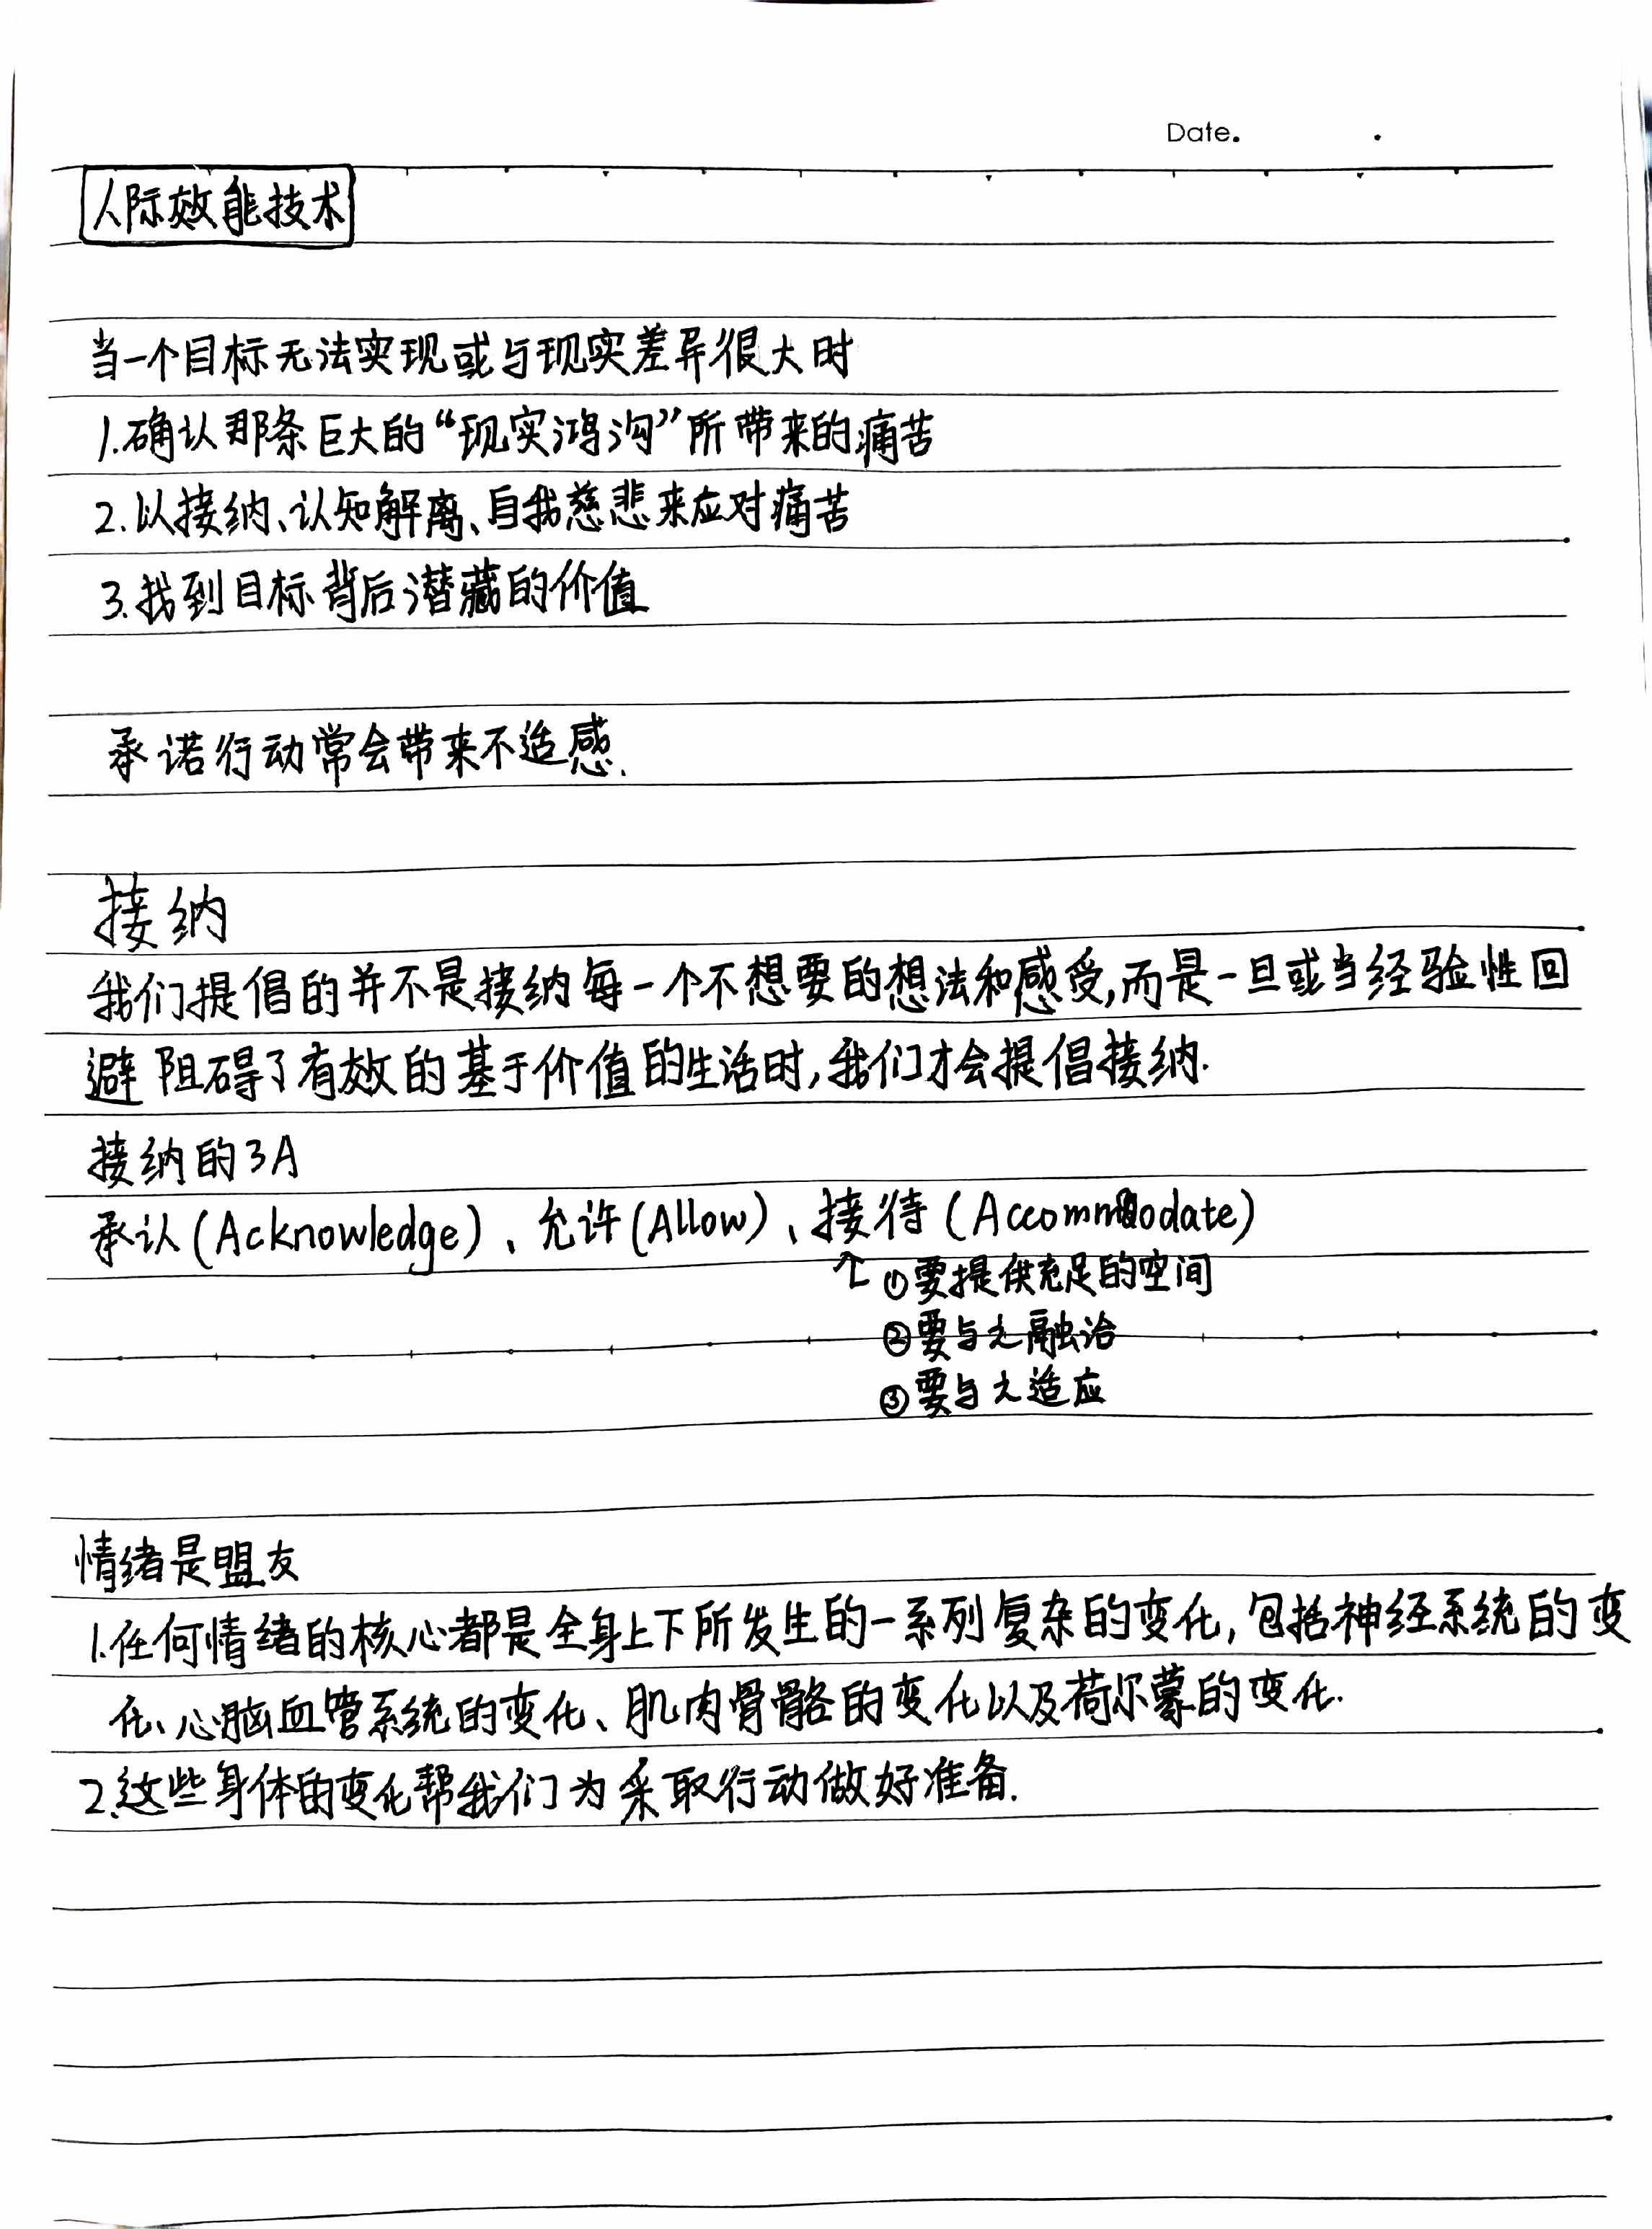 Date.
人际效能技术
当一个目标无法实现或与现实差异很大时
1.确认那条巨大的“现实鸿沟”所带来的痛苦
2.以接纳、认知解离、自我慈悲来应对痛苦
3.找到目标背后潜藏的价值
承诺行动常会带来不适感.
接纳
我们提倡的并不是接纳每一个不想要的想法和感受,而是一旦或当经验性回
避阻碍了有效的基于价值的生活时,我们才会提倡接纳.
接纳的3A
承认(Acknowledge)、允许(Allow)、接待(Accommodate)
↑ ①要提供充足的空间
②要与之融洽
③要与之适应
情绪是盟友
1.任何情绪的核心都是全身上下所发生的一系列复杂的变化,包括神经系统的变
化、心脑血管系统的变化、肌肉骨骼的变化以及荷尔蒙的变化.
2.这些身体的变化帮我们为采取行动做好准备.